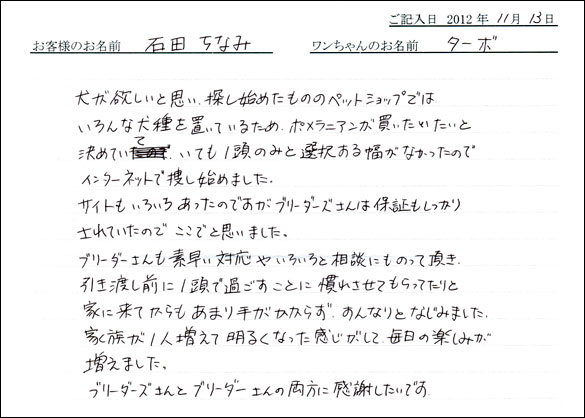 ご記入日 2012年 11月 13日
お客様のお名前 石田 ちなみ ワンちゃんのお名前 ターボ
犬が欲しいと思い、探し始めたもののペットショップでは
いろんな犬種を置いているため、ポメラニアンが買いたいと
決めていて、いても1頭のみと選択ある幅がなかったので
インターネットで捜し始めました。
サイトもいろいろあったのですがブリーダーズさんは保証もしっかり
されていたので ここでと思いました。
ブリーダーさんも素早い対応やいろいろと相談にものって頂き、
引き渡し前に1頭で過ごすことに慣れさせてもらってたりと
家に来てからもあまり手がかからず、すんなりとなじみました。
家族が1人増えて明るくなった感じがして、毎日の楽しみが
増えました。
ブリーダーズさんとブリーダーさんの両方に感謝したいです。